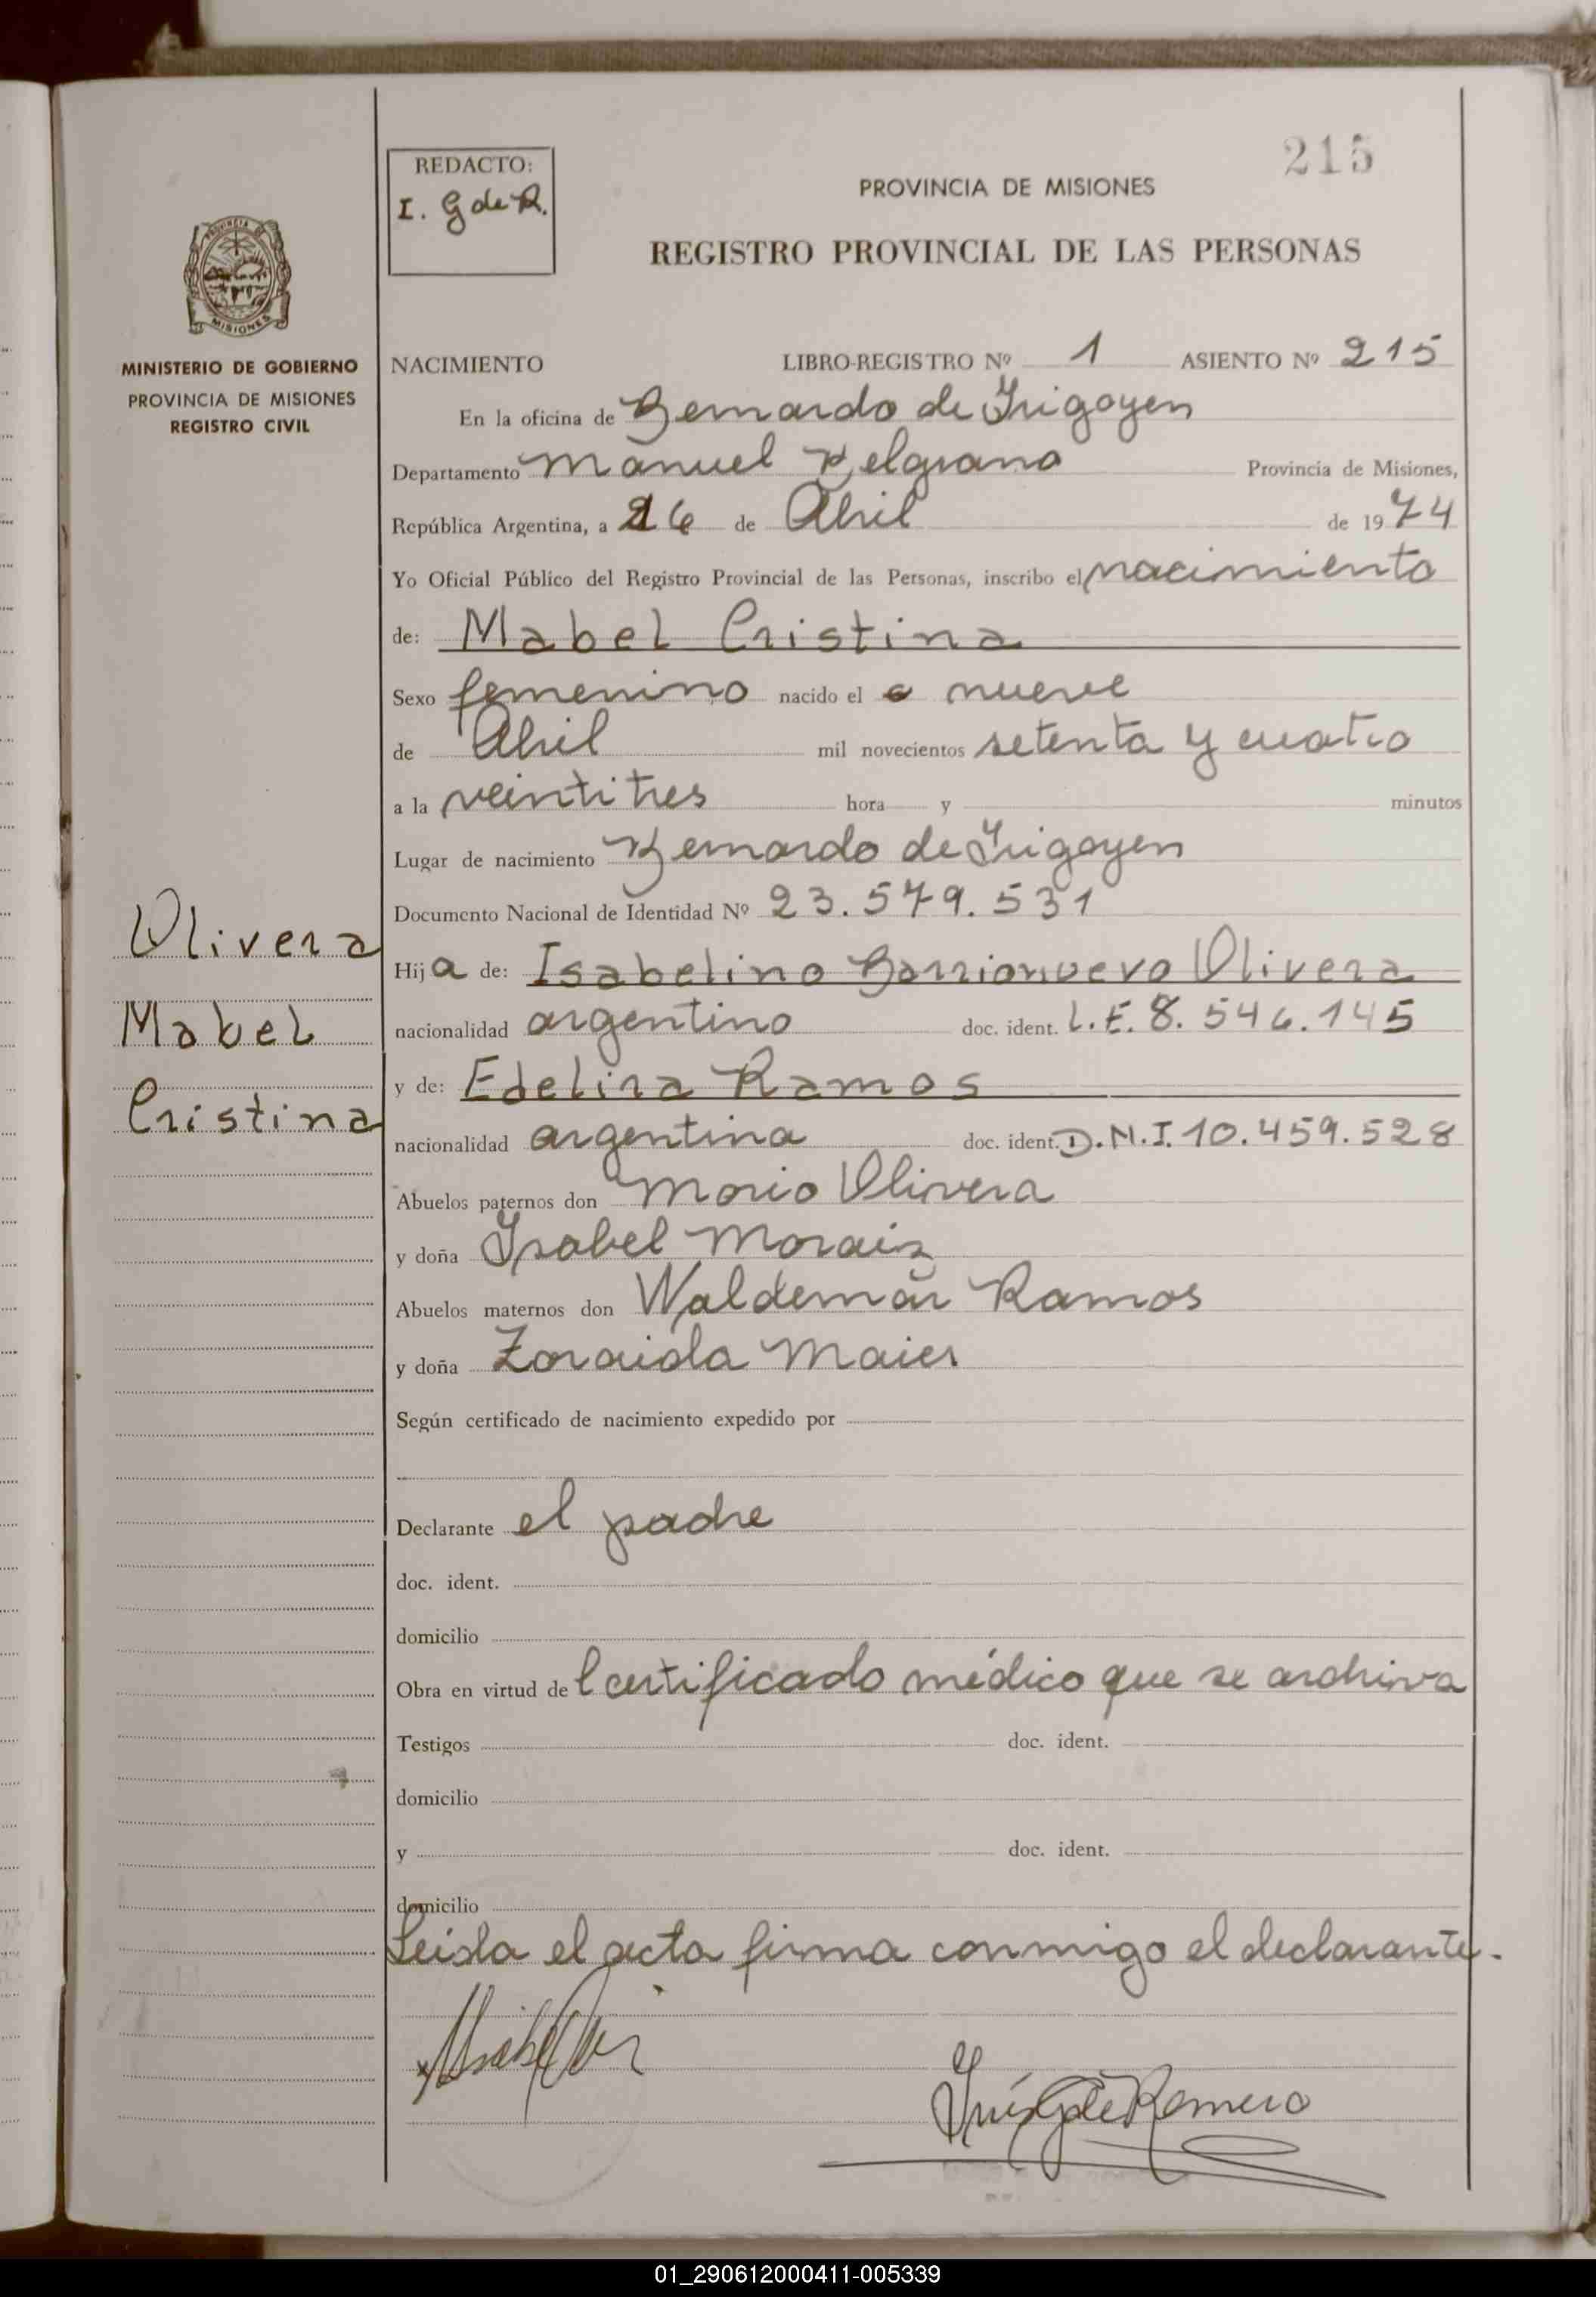 215
REDACTO:
I. G de R.
PROVINCIA DE MISIONES
REGISTRO PROVINCIAL DE LAS PERSONAS
PROVINCIA DE
MISIONES
MINISTERIO DE GOBIERNO
PROVINCIA DE MISIONES
REGISTRO CIVIL
NACIMIENTO LIBRO-REGISTRO Nº 1 ASIENTO Nº 215
En la oficina de Bernardo de Irigoyen
Departamento Manuel Belgrano Provincia de Misiones,
República Argentina, a 26 de Abril de 1974
Yo Oficial Público del Registro Provincial de las Personas, inscribo el nacimiento
de: Mabel Cristina
Sexo femenino nacido el nueve
de Abril mil novecientos setenta y cuatro
a la veintitres hora y minutos
Lugar de nacimiento Bernardo de Irigoyen
Documento Nacional de Identidad Nº 23.579.531
Olivera
Mabel
Cristina
Hija de: Isabelino Barrionuevo Olivera
nacionalidad argentino doc. ident. L.E. 8.546.145
y de: Edelira Ramos
nacionalidad argentina doc. ident. D.N.I. 10.459.528
Abuelos paternos don Mario Olivera
y doña Isabel Moraiz
Abuelos maternos don Waldemar Ramos
y doña Zoraida Maier
Según certificado de nacimiento expedido por
Declarante el padre
doc. ident.
domicilio
Obra en virtud de l certificado médico que se archiva
Testigos doc. ident.
domicilio
y doc. ident.
domicilio
Leida el acta firma conmigo el declarante.
Inés G de Romero
01_290612000411-005339